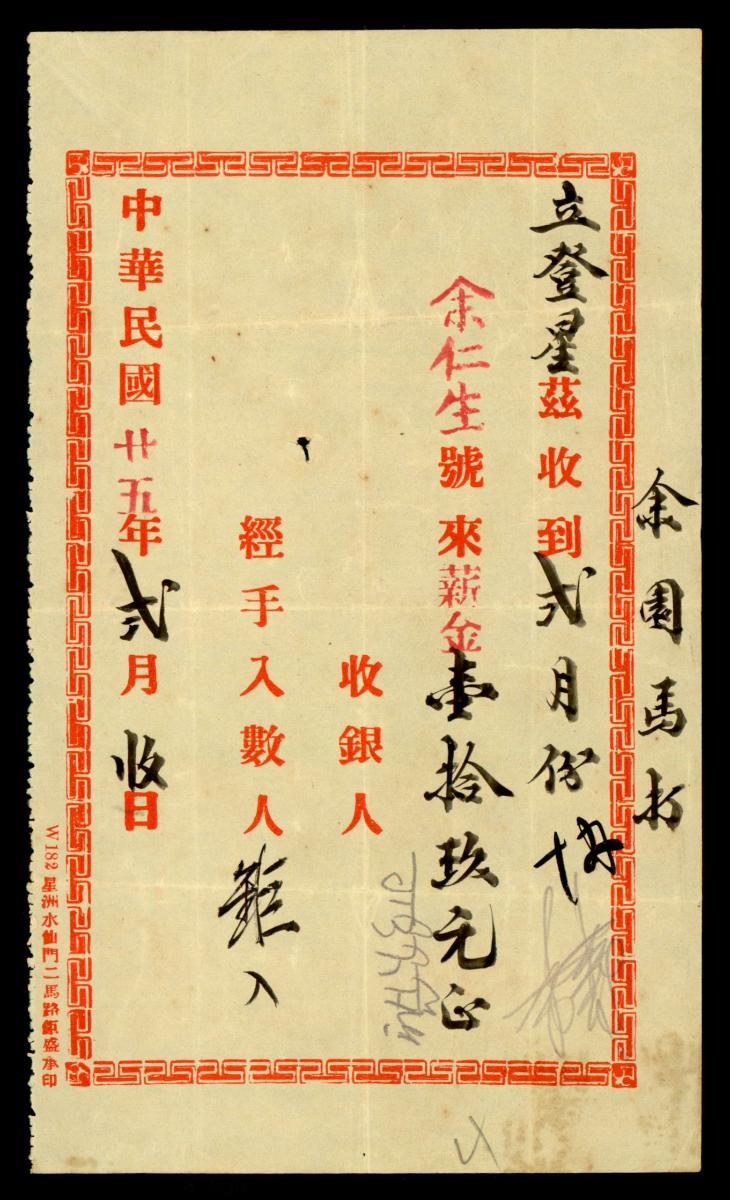 余園馬打
立登星茲收到弍月份
余仁生號來薪金壹拾玖元正
收銀人
經手入數人 鉅入
中華民國廿五年弍月收日
W182 星洲水仙門二馬路鉅盛承印